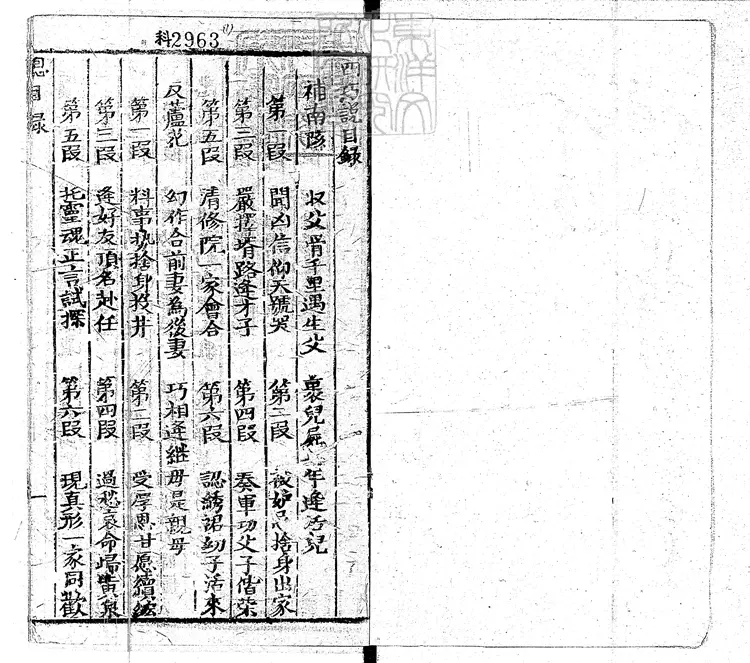 科2963
四巧説目録
補南陔 收父骨千里遇生父 裹兒屍 年逢活兒
第一段 聞凶信仰天號哭 第二段 被 捨身出家
第三段 嚴擇壻路逢才子 第四段 奏軍功父子偕榮
第五段 清修院一家會合 第六段 認綉裙幼子活來
反蘆花 幻作合前妻為後妻 巧相逢継母是親母
第一段 料事 捨身投井 第二段 受厚恩甘愿續絃
第三段 逢好友頂名赴任 第四段 過 哀命歸黄泉
第五段 托靈魂正言試探 第六段 現真形一家同歡
總目録
一